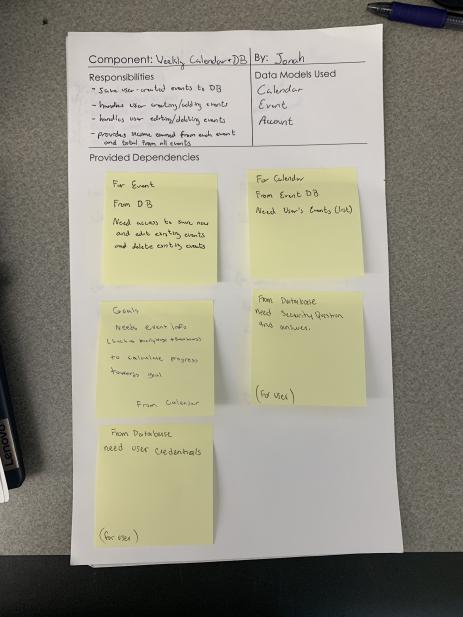 Component: Weekly Calendar + DB
By: Jonah
Responsibilities
- save user-created events to DB
- handles user creating/adding events
- handles user editing/deleting events
- provides income earned from each event
and total from all events
Data Models Used
Calendar
Event
Account
Provided Dependencies
For Event
From DB
Need access to save new
and edit existing events
and delete existing events
For Calendar
From Event DB
Need User's Events (list)
Goals
Needs event info
to calculate progress
towards goal
From Calendar
From Database
need Security Question
and answer.
(for user)
From Database
need user credentials
(for user)
Lenovo